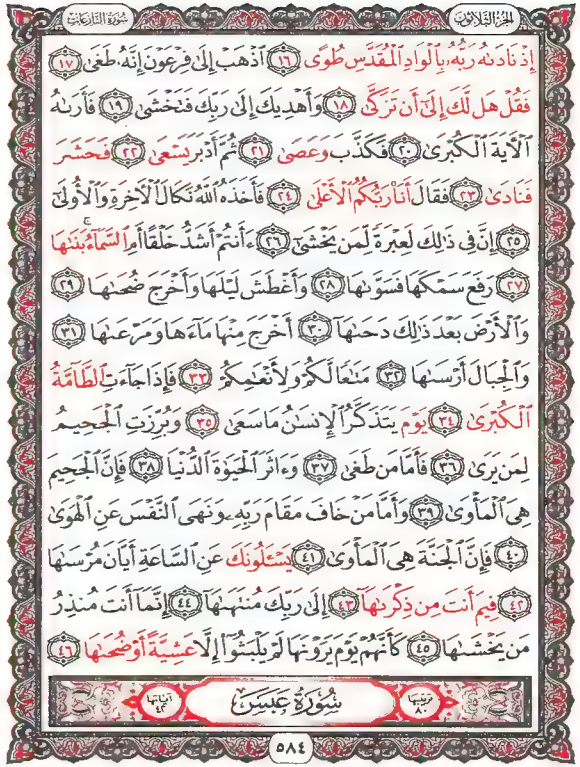 سُورَةُ النَّازِعَاتِ الجزءُ الثَّلَاثُونَ
إِذْ نَادَىٰهُ رَبُّهُۥ بِٱلْوَادِ ٱلْمُقَدَّسِ طُوًى ١٦ ٱذْهَبْ إِلَىٰ فِرْعَوْنَ إِنَّهُۥ طَغَىٰ ١٧
فَقُلْ هَل لَّكَ إِلَىٰٓ أَن تَزَكَّىٰ ١٨ وَأَهْدِيَكَ إِلَىٰ رَبِّكَ فَتَخْشَىٰ ١٩ فَأَرَىٰهُ
ٱلْأٓيَةَ ٱلْكُبْرَىٰ ٢٠ فَكَذَّبَ وَعَصَىٰ ٢١ ثُمَّ أَدْبَرَ يَسْعَىٰ ٢٢ فَحَشَرَ
فَنَادَىٰ ٢٣ فَقَالَ أَنَا۠ رَبُّكُمُ ٱلْأَعْلَىٰ ٢٤ فَأَخَذَهُ ٱللَّهُ نَكَالَ ٱلْأٓخِرَةِ وَٱلْأُولَىٰٓ
٢٥ إِنَّ فِى ذَٰلِكَ لَعِبْرَةً لِّمَن يَخْشَىٰٓ ٢٦ ءَأَنتُمْ أَشَدُّ خَلْقًا أَمِ ٱلسَّمَآءُ ۚ بَنَىٰهَا
٢٧ رَفَعَ سَمْكَهَا فَسَوَّىٰهَا ٢٨ وَأَغْطَشَ لَيْلَهَا وَأَخْرَجَ ضُحَىٰهَا ٢٩
وَٱلْأَرْضَ بَعْدَ ذَٰلِكَ دَحَىٰهَآ ٣٠ أَخْرَجَ مِنْهَا مَآءَهَا وَمَرْعَىٰهَا ٣١
وَٱلْجِبَالَ أَرْسَىٰهَا ٣٢ مَتَٰعًا لَّكُمْ وَلِأَنْعَٰمِكُمْ ٣٣ فَإِذَا جَآءَتِ ٱلطَّآمَّةُ
ٱلْكُبْرَىٰ ٣٤ يَوْمَ يَتَذَكَّرُ ٱلْإِنسَٰنُ مَا سَعَىٰ ٣٥ وَبُرِّزَتِ ٱلْجَحِيمُ
لِمَن يَرَىٰ ٣٦ فَأَمَّا مَن طَغَىٰ ٣٧ وَءَاثَرَ ٱلْحَيَوٰةَ ٱلدُّنْيَا ٣٨ فَإِنَّ ٱلْجَحِيمَ
هِىَ ٱلْمَأْوَىٰ ٣٩ وَأَمَّا مَنْ خَافَ مَقَامَ رَبِّهِۦ وَنَهَى ٱلنَّفْسَ عَنِ ٱلْهَوَىٰ
٤٠ فَإِنَّ ٱلْجَنَّةَ هِىَ ٱلْمَأْوَىٰ ٤١ يَسْـَٔلُونَكَ عَنِ ٱلسَّاعَةِ أَيَّانَ مُرْسَىٰهَا
٤٢ فِيمَ أَنتَ مِن ذِكْرَىٰهَآ ٤٣ إِلَىٰ رَبِّكَ مُنتَهَىٰهَآ ٤٤ إِنَّمَآ أَنتَ مُنذِرُ
مَن يَخْشَىٰهَا ٤٥ كَأَنَّهُمْ يَوْمَ يَرَوْنَهَا لَمْ يَلْبَثُوٓا۟ إِلَّا عَشِيَّةً أَوْ ضُحَىٰهَا ٤٦
ترتيبها ٨٠ سُورَةُ عَبَسَ آياتها ٤٢
٥٨٤